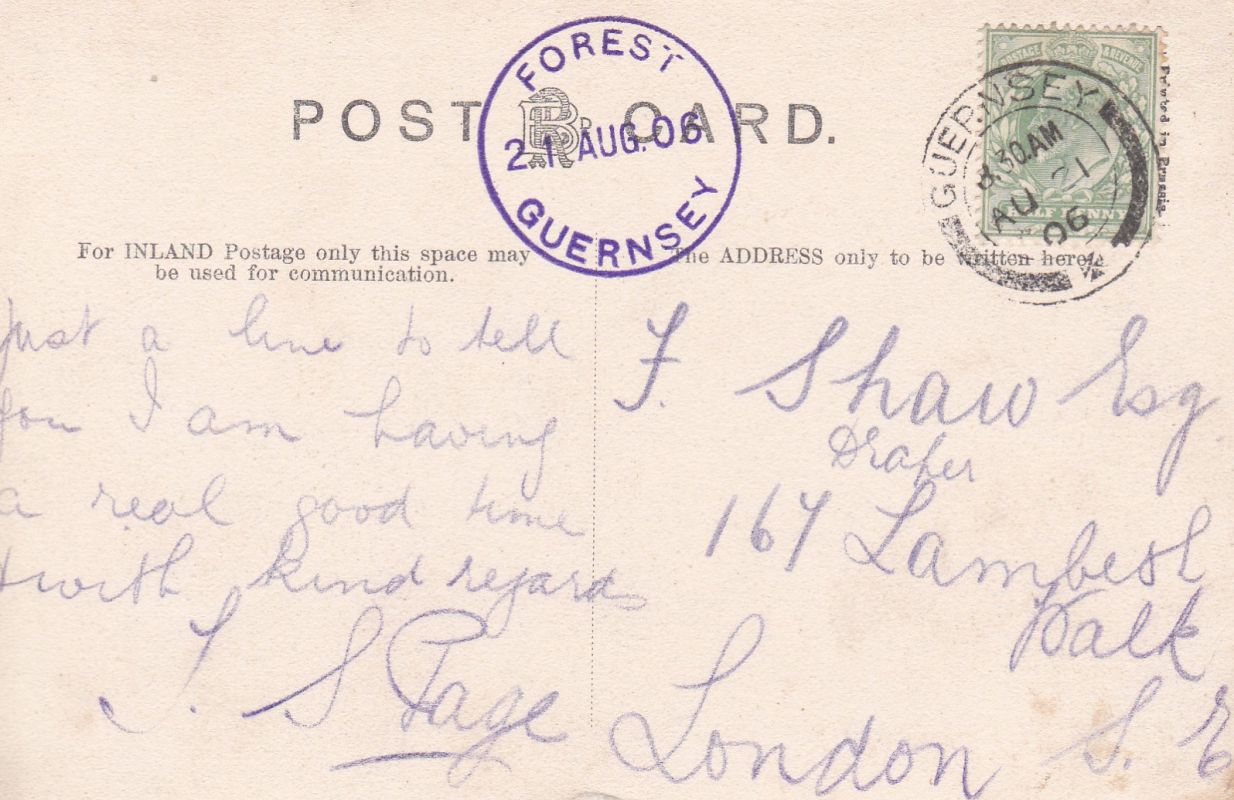 POST CARD.
FOREST
21 AUG. 06
GUERNSEY
POSTAGE & REVENUE
HALF PENNY
GUERNSEY
8.30.AM
AU 21
06
Printed in Prussia
For INLAND Postage only this space may
be used for communication.
The ADDRESS only to be written here.
Just a line to tell
you I am having
a real good time
with kind regards
S Page
F. Shaw Esq
Draper
167 Lambeth
Walk
London S. E